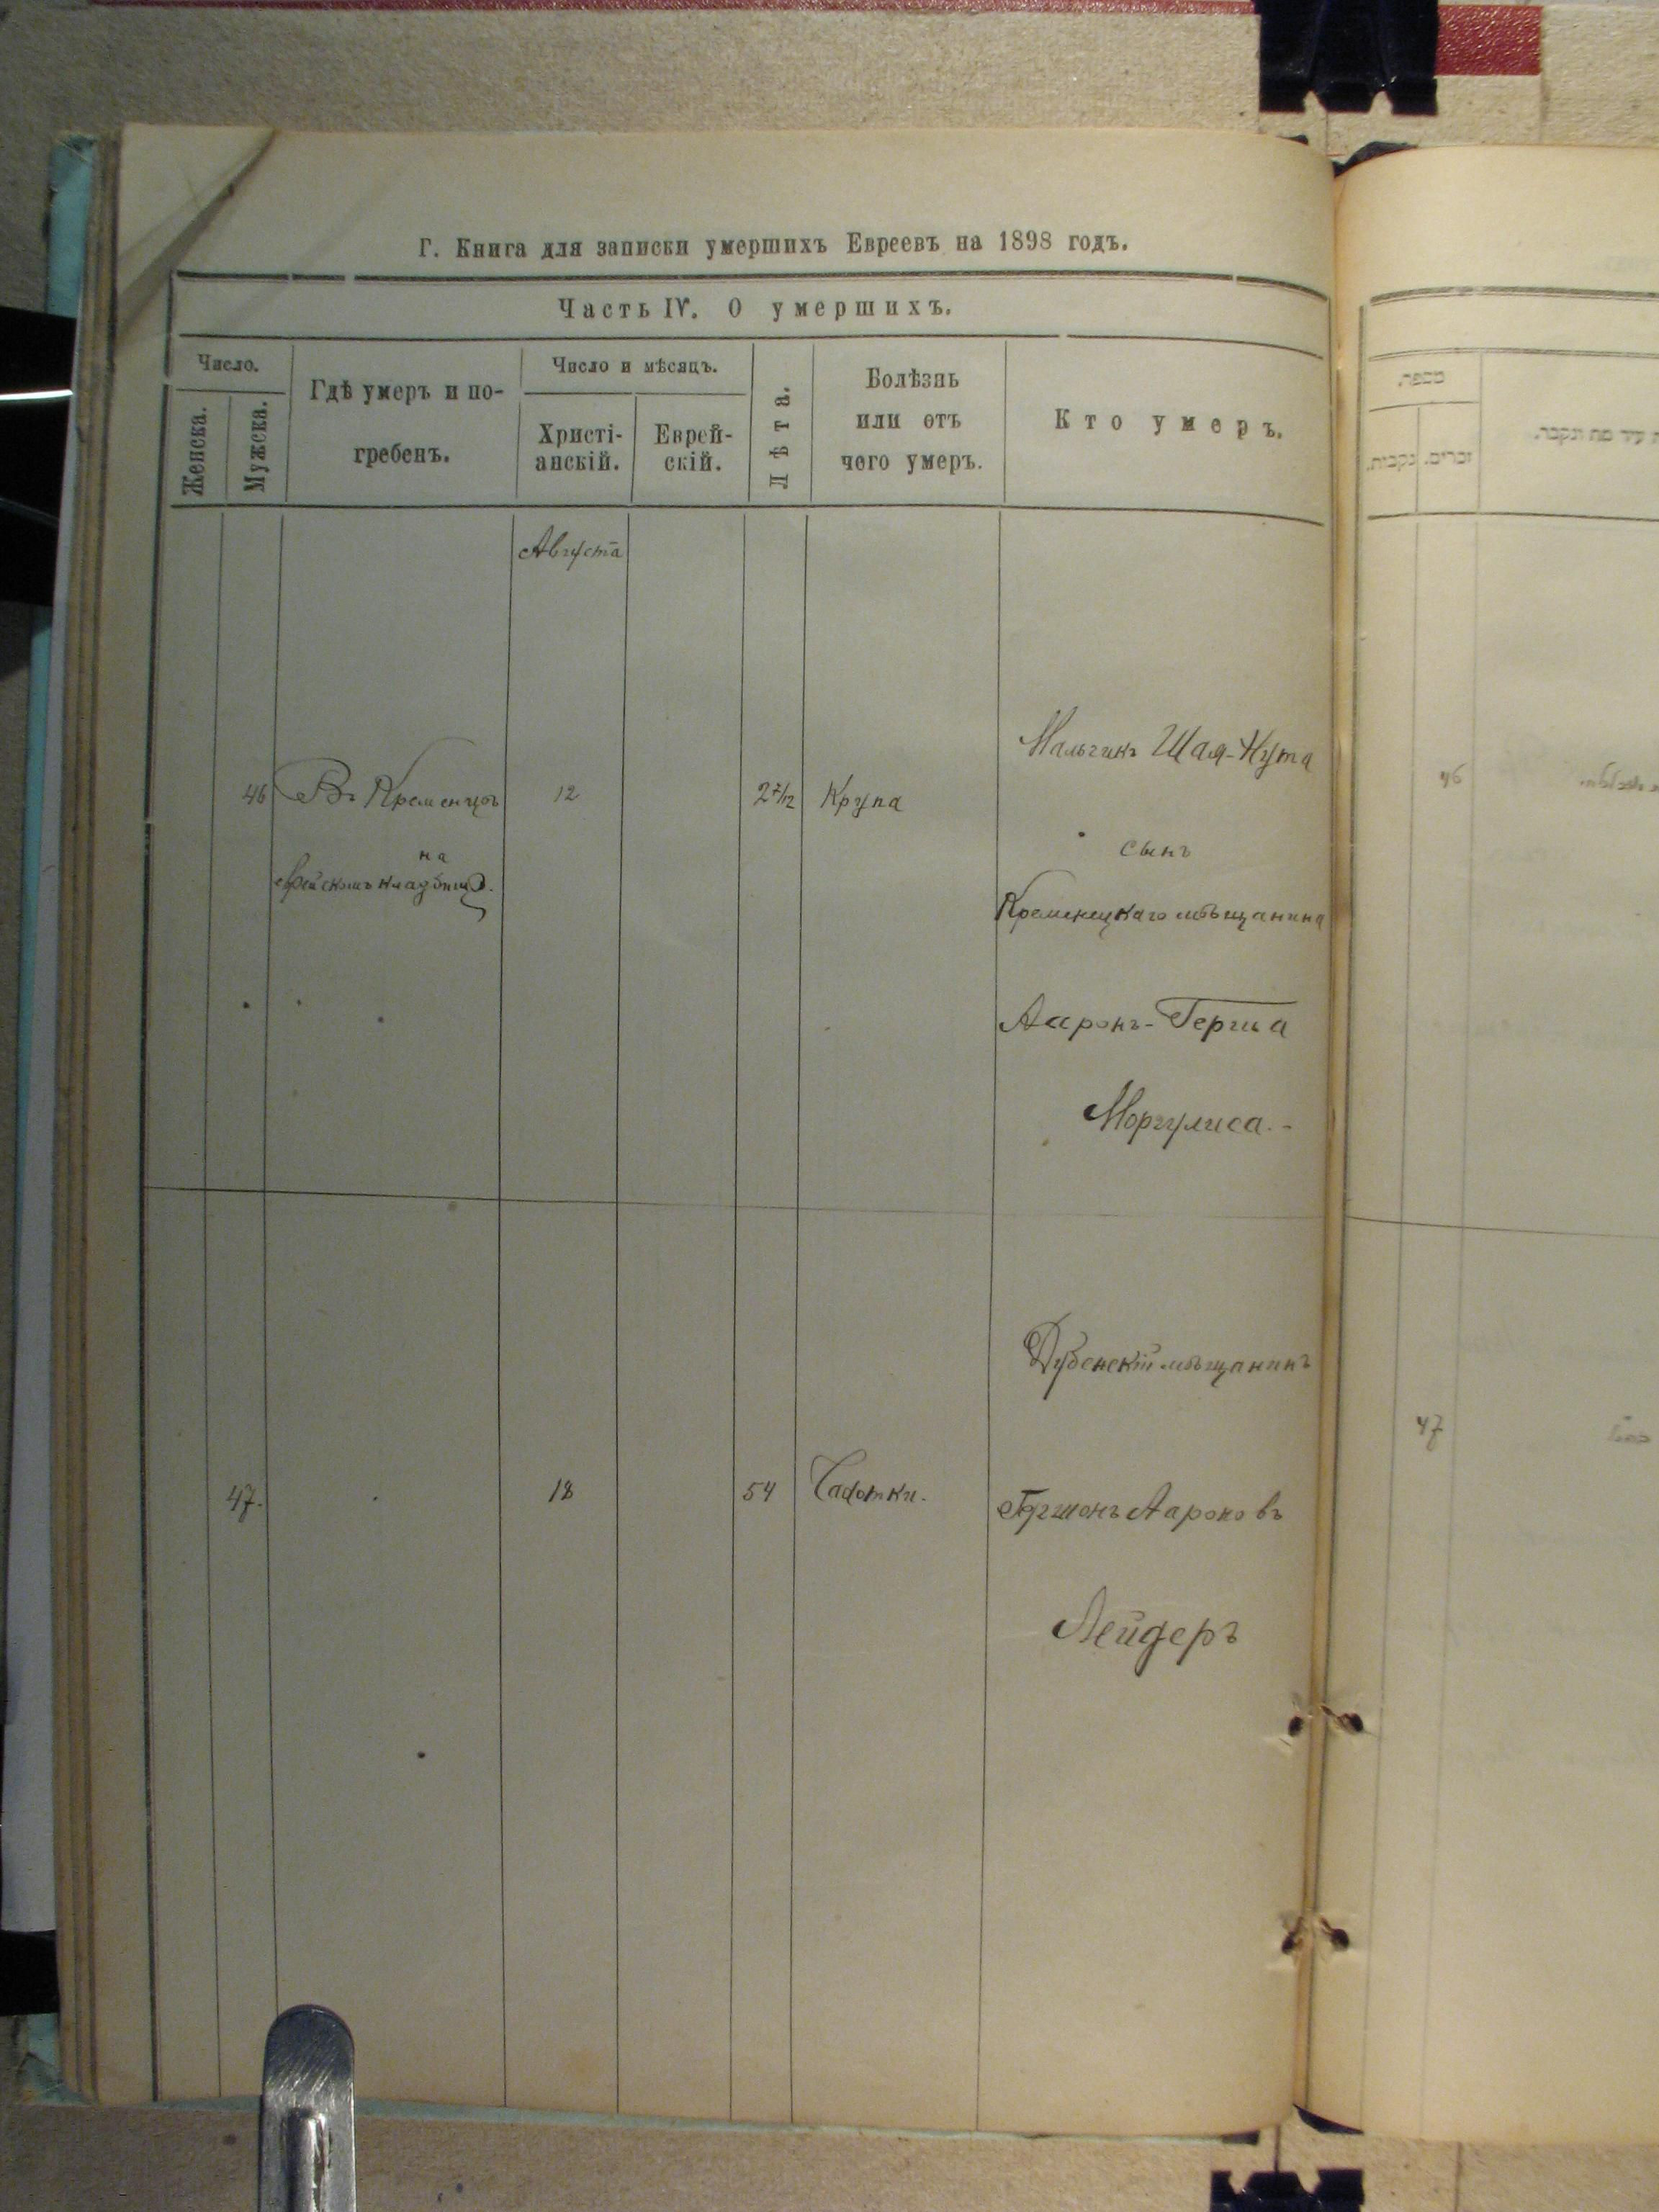 Г. Книга для записки умершихъ Евреевъ на 1898 годъ.
Часть IV. О умершихъ.
Число.
Женска.
Мужска.
Гдѣ умеръ и по-
гребенъ.
Число и мѣсяцъ.
Христі-
анскій.
Еврей-
скій.
Лѣта.
Болѣзнь
или отъ
чего умеръ.
Кто умеръ.
Августа
46 Въ Кременцѣ 12 2 7/12 Крупа
на
еврейскомъ кладбищѣ.
Мальчикъ Шая-Нута
сынъ
Кременецкаго мѣщанина
Ааронъ-Герша
Моргулиса.-
47. 18 54 Чахотки.
Дубенскій мѣщанинъ
Гершонъ Аароновъ
Лейдеръ
מספר.
זכרים.
נקבות.
46
47